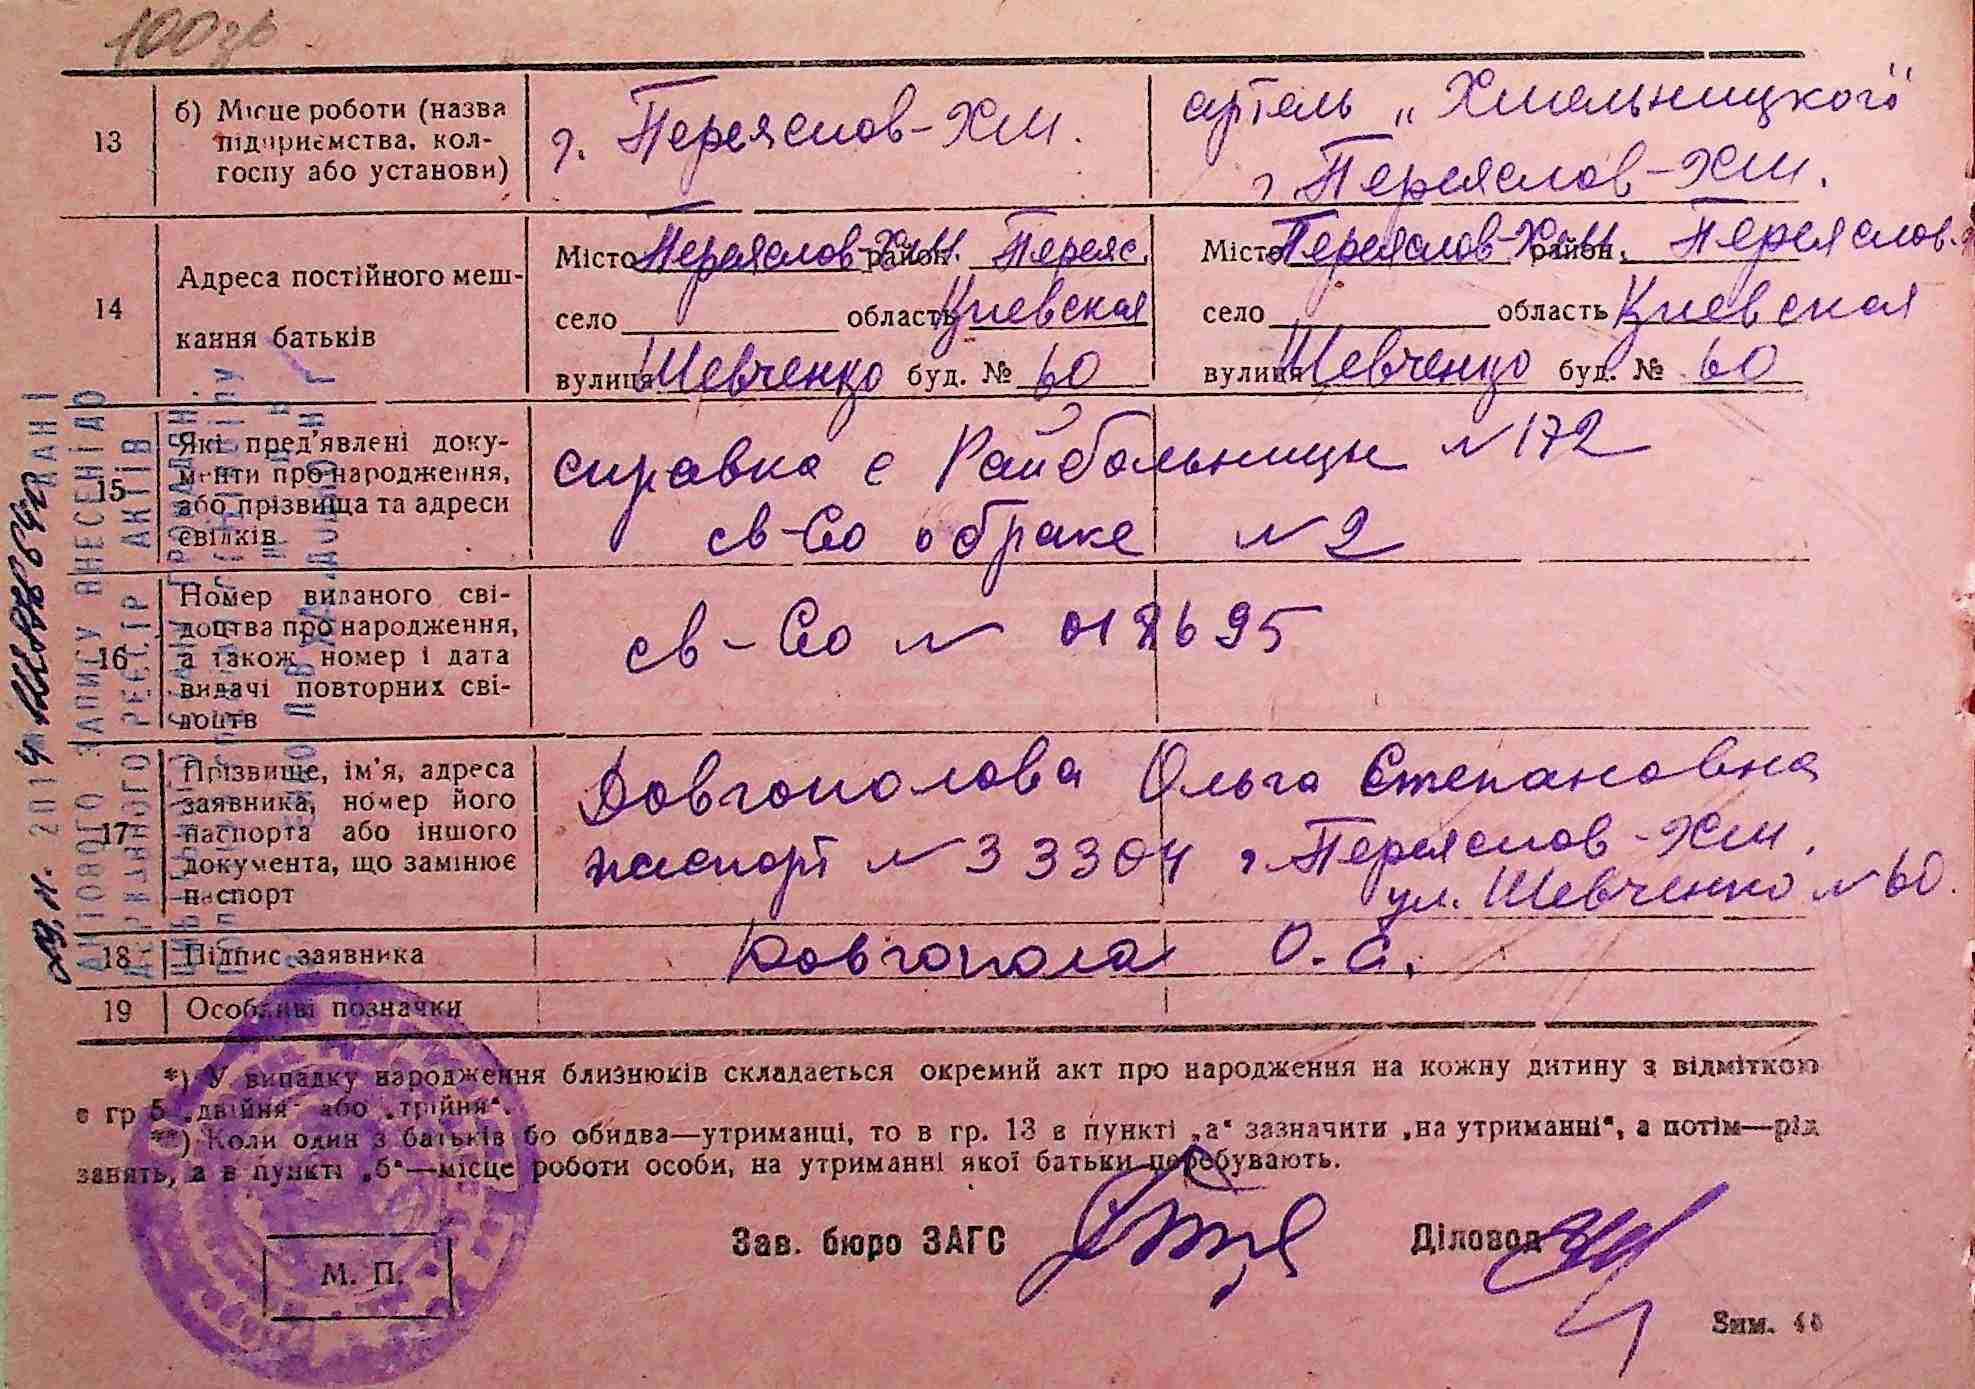 100
13
б) Місце роботи (назва
підприємства, кол-
госпу або установи)
г. Переяслов-Хм.
артель „Хмельницкого"
г Переяслов-Хм.
14
Адреса постійного меш-
кання батьків
Місто Переяслов-Хм район, Переяс.
село область Киевская
вулиця Шевченко буд. № 60
Місто Переяслов-Хм. район, Переяслов.
село область Киевская
вулиця Шевченко буд. № 60
15
Які пред'явлені доку-
менти про народження,
або прізвища та адреси
свілків
справка с Райбольницы № 172
св-во о браке № 2
16
Номер виданого сві-
доцтва про народження,
а також номер і дата
видачі повторних сві-
доцтв
св-во № 018695
17
Прізвище, ім'я, адреса
заявника, номер його
паспорта або іншого
документа, що замінює
паспорт
Довгополова Ольга Степановна
паспорт № 33304 г. Переяслов-Хм.
ул. Шевченко № 60.
18
Підпис заявника
Довгопола О. С.
19
Особливі позначки
*) У випадку народження близнюків складається окремий акт про народження на кожну дитину з відміткою
в гр 5 „двійня" або „трійня".
**) Коли один з батьків бо обидва—утриманці, то в гр. 13 в пункті „а" зазначити „на утриманні", а потім—рід
занять, а в пункті „б"—місце роботи особи, на утриманні якої батьки перебувають.
Зав. бюро ЗАГС
Діловод
М. П.
Зим.
АКТОВОГО ЗАПИСУ ВНЕСЕНІ ДО
ДЕРЖАВНОГО РЕЄСТР АКТІВ